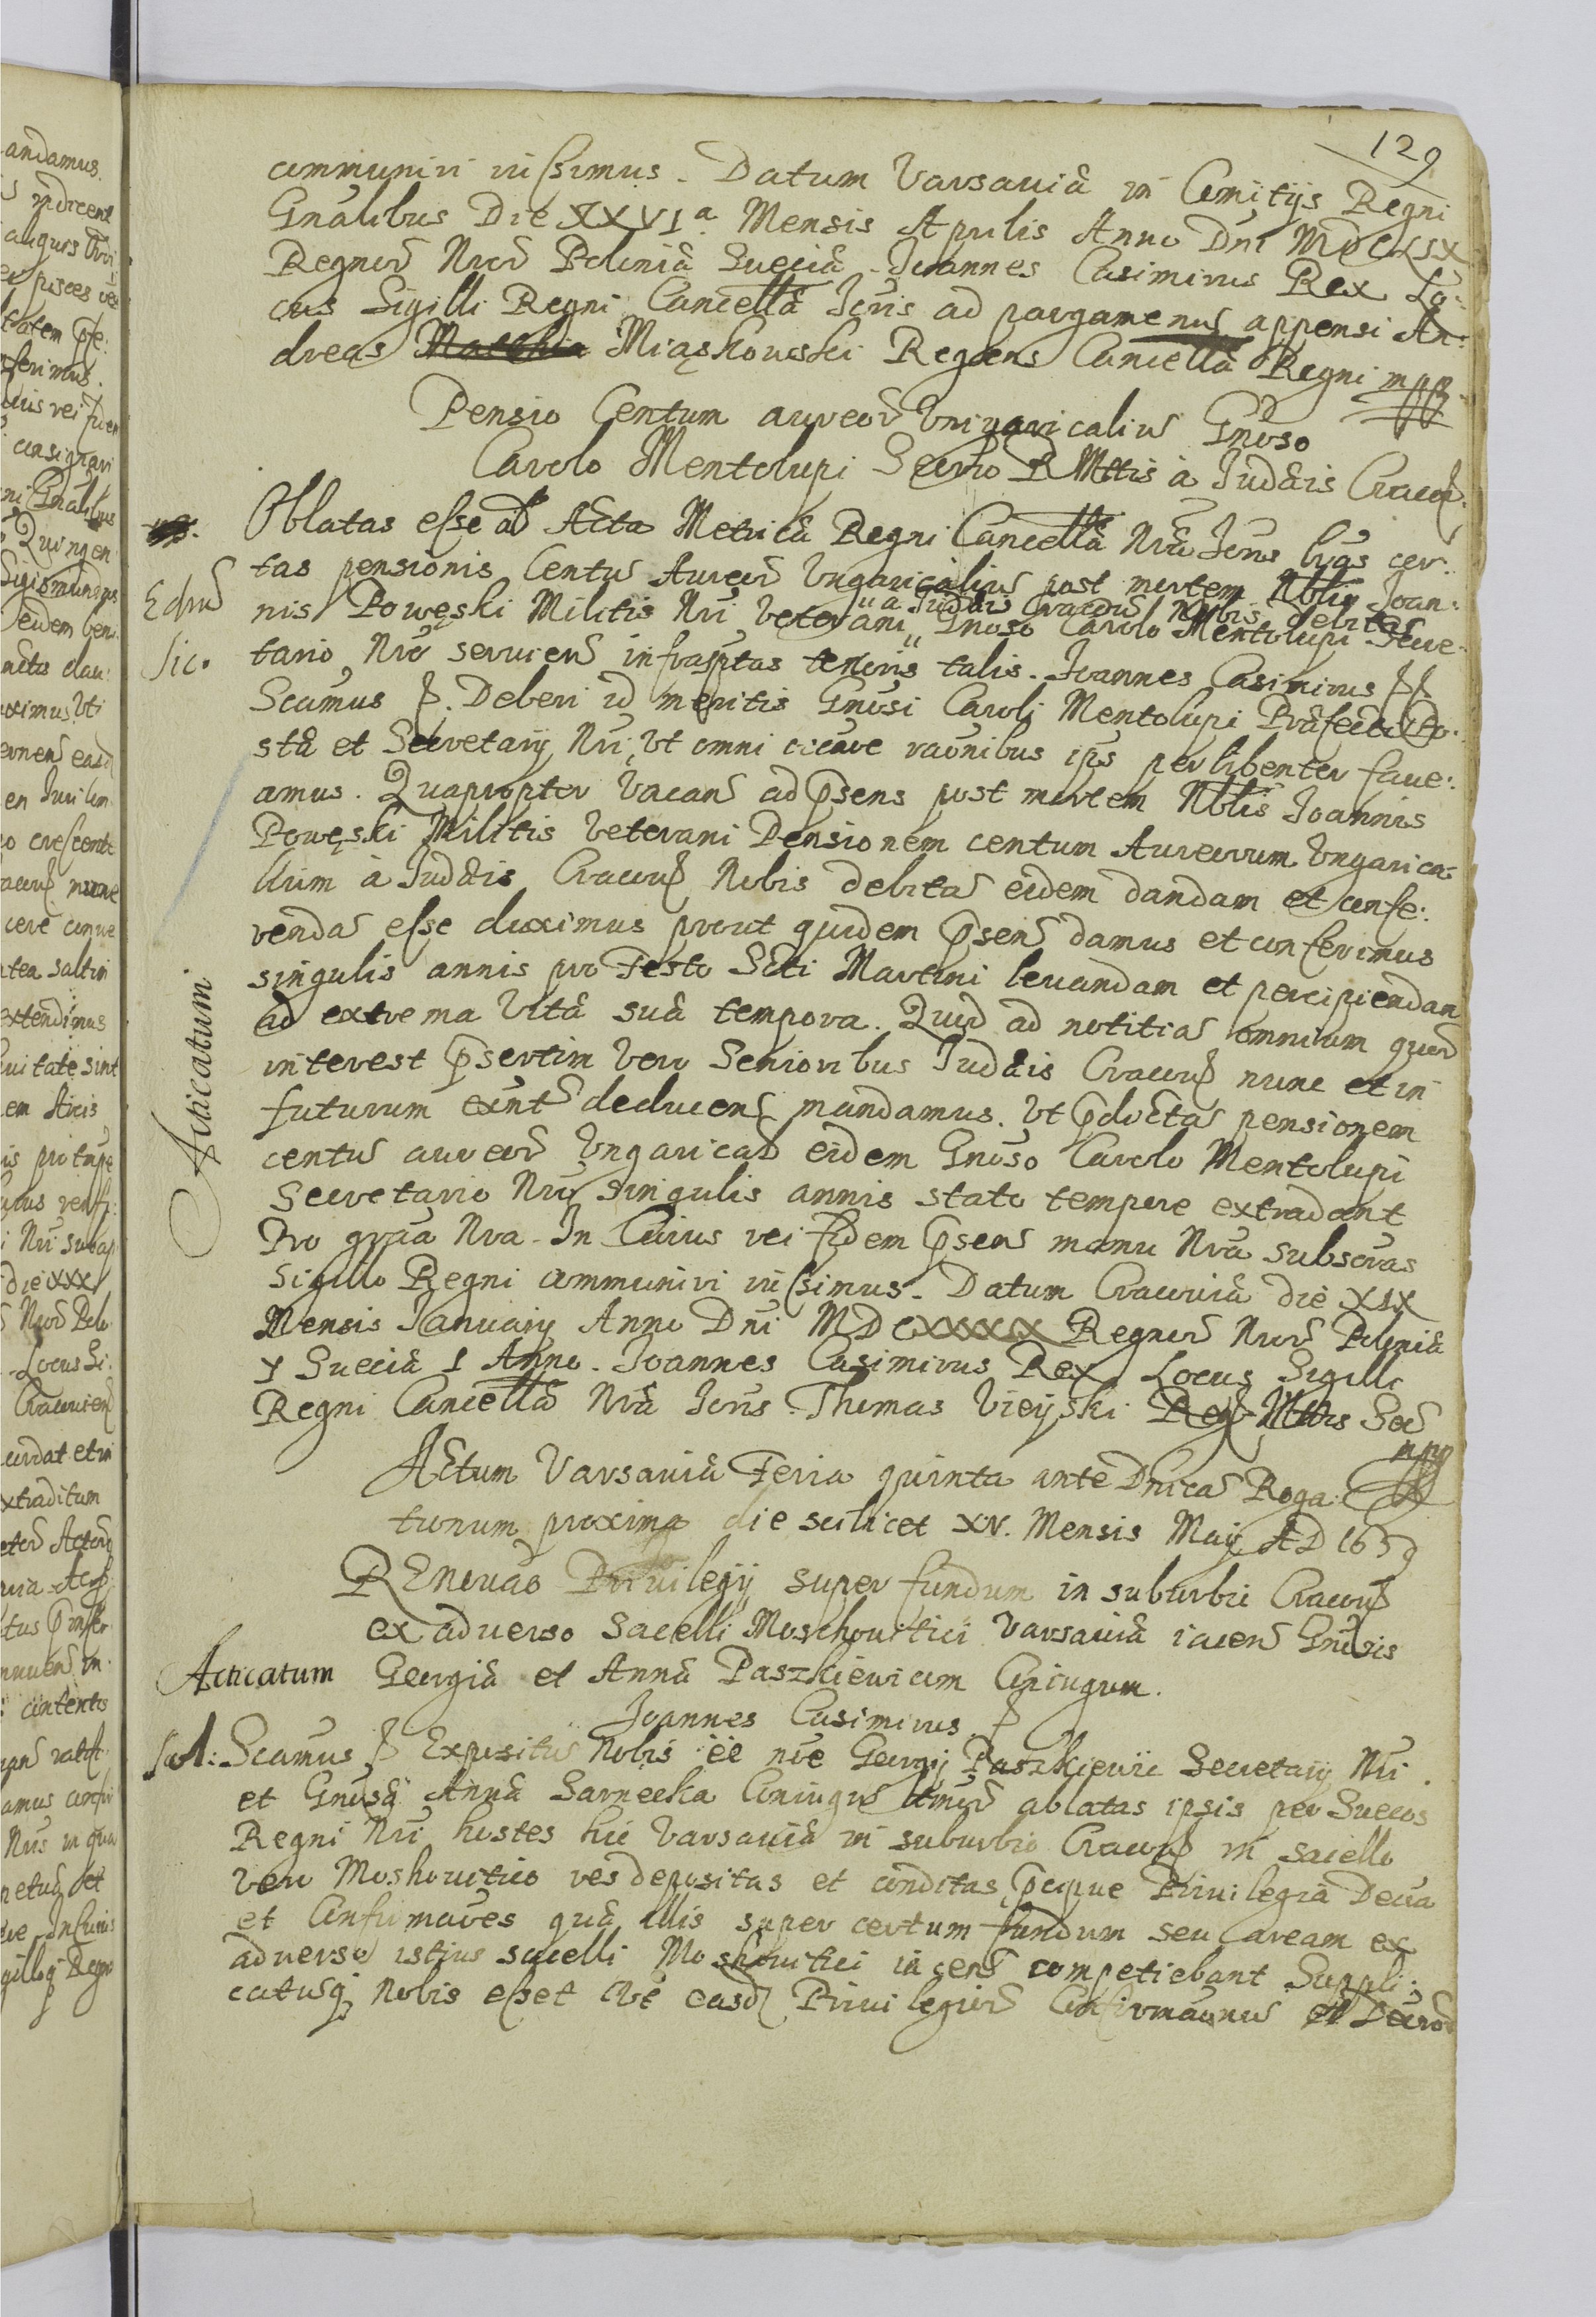 129
communiri iussimus. Datum Varsaviæ in Comitijs Regni
Gnãlibus Die XXVI a Mensis Aprilis Anno Dni MDCLIX
Regnorũ Nrorũ Poloniæ Sueciæ. Joannes Casimirus Rex Lo:
cus Sigilli Regni Cancellæ Ioris ad pargamenũ appensi An:
dreas Miąskowski Regens Cancellæ Regni mpp
Pensio Centum aureorũ Vngaricaliũ Gnoso
Carolo Montelupi Secrio R Mttis à Judæis Cracov.
Oblatas esse ad Acta Metricæ Regni Cancellæ Nræ Ioris lras cer:
tas pensionis Centũ Aureorũ Vngaricaliũ post mortem Nblis Joan:
à Judæis Cracoviẽ Nobis debitas
nis Powęski Militis Nri Veterani Gnoso Carolo Montolupi Secre:
tario Nro servien infrascriptas tenoris talis. Joannes Casimirus
Scamus. Deberi id meritis Gnosi Caroli Montolupi Præfecti Po:
stæ et Secretarij Nri, Vt omni occure raõnibus ips perlibenter fave:
amus. Quapropter Vacan ad psens post mortem Nblis Joannis
Powęski Militis Veterani Pensionem centum Aureorum Vngarica:
lium à Judæis Cracov Nobis debitã eidem dandam et confe:
rendã esse duximus prout quidem psen damus et conferimus
singulis annis pro Festo Scti Martini levandam et percipiendam
ad extrema Vitæ suæ tempora. Quod ad notitiã omnium quorũ
interest psertim Vero Senioribus Judæis Cracov nunc et in
futurum exñt deducen mandamus. Vt pdictã pensionem
centũ aureorũ Vngarical eidem Gnoso Carolo Montolupi
Secretario Nro singulis annis stato tempore extradant
Pro graã Nra. In Cuius rei fidem psen manu Nra subscras
Sigillo Regni communiri iussimus. Datum Cracoviæ die XIX
Mensis Ianuarij Anno Dni MDCXXXXIX Regnorũ Nrorũ Poloniæ
et Sueciæ I Anno. Joannes Casimirus Rex Locus Sigilli
Regni Cancellæ Nræ Ioris Thomas Vieyski Reg Mttis Sec
mpp
Actum Varsaviæ Feria quinta ante Dnicã Roga:
tionum proxima die scilicet XV. Mensis Maij AD 1659
REnovao Privilegij super fundum in suburbii Cracov
ex adverso Sacelli Moschovitici Varsaviæ iacen Gnosis
Georgiæ et Annæ Paszkiewicom Coniugum.
Joannes Casimirus
Scamus Expositũ Nobis ẽe nõe Georgij Paszkiewic Secretarij Nri
et Gnosæ Annæ Sarnecka Coniugũ ltmorũ ablatas ipsis per Suecos
Regni Nri hostes hic Varsaviæ in suburbio Cracov in saiello
vero Moshovitico res depositas et conditas pcipue Privilegia Decta
et Confirmaões quæ illis super certum fundum seu aream ex
adverso istius sacelli Moshovitici iacen competiebant Suppli:
catũq Nobis esset Vt easd Privilegiorũ Confirmaõnũ et Decrõ
Edrũ
Sic.
Acticatum
Acticatum